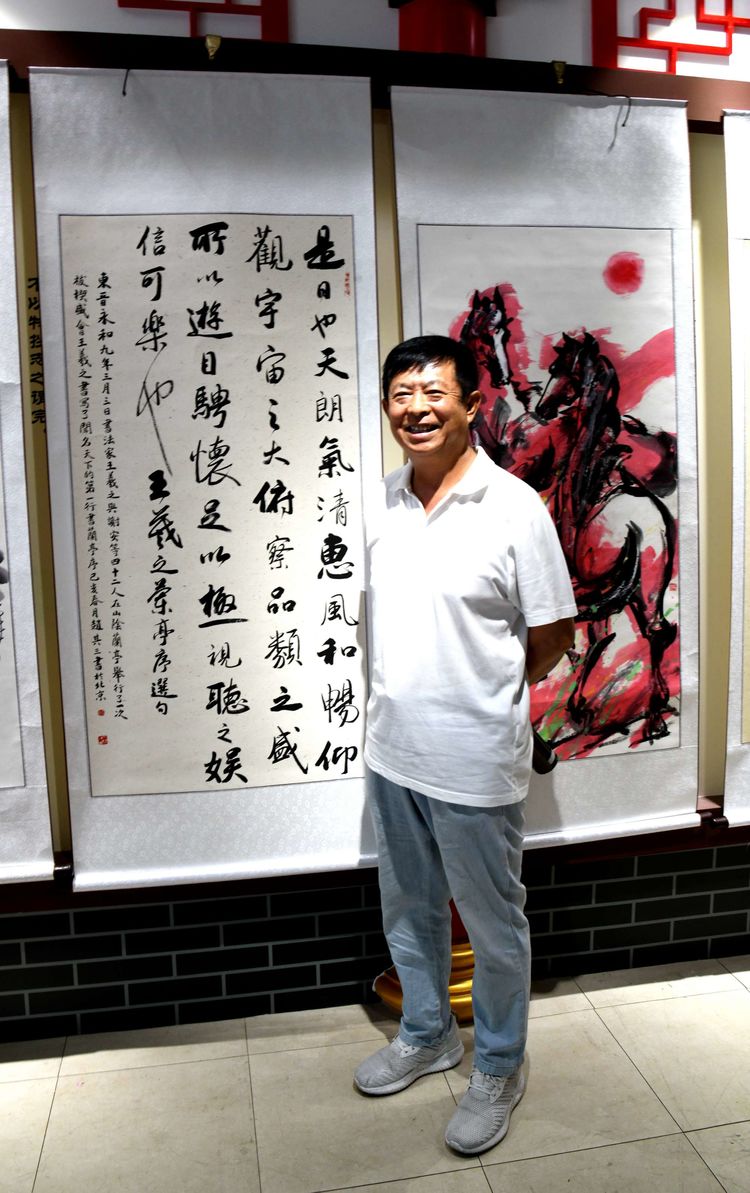 是日也天朗氣清惠風和暢仰
觀宇宙之大俯察品類之盛
所以遊目騁懷足以極視聽之娛
信可樂也 王羲之蘭亭序選句
東晉永和九年三月三日書法家王羲之與謝安等四十二人在山陰蘭亭舉行了一次
祓禊盛會王羲之書寫了聞名天下的第一行書蘭亭序己亥春月趙其三書於北京